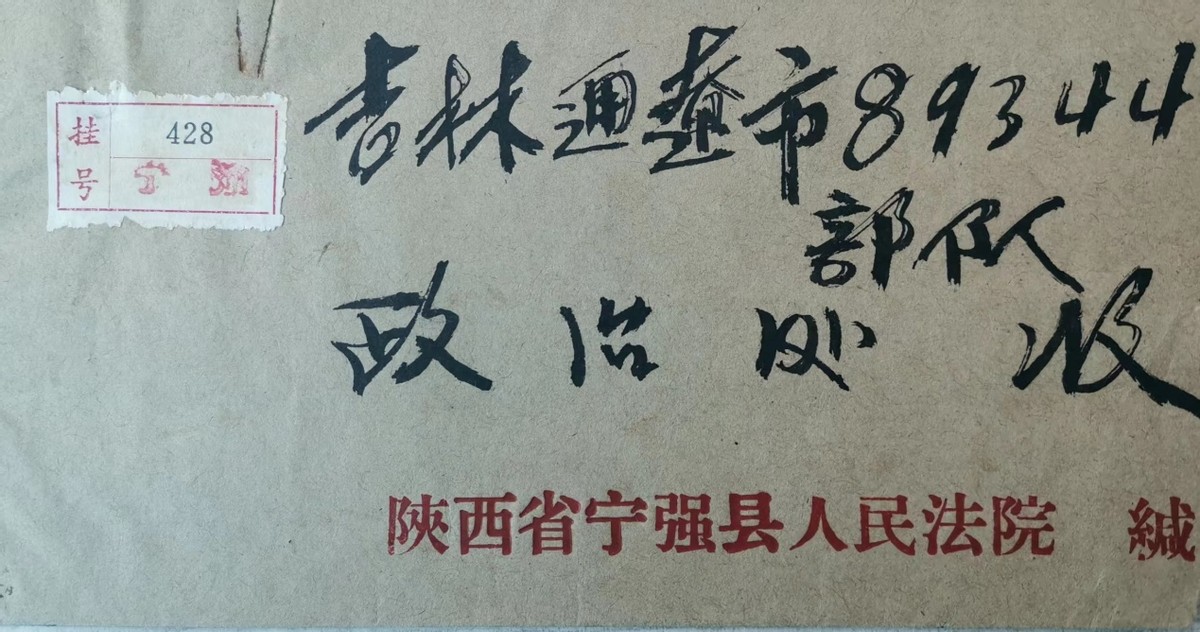 挂号
428
宁强
吉林通遼市89344
部队
政治处收
陝西省宁强县人民法院 緘